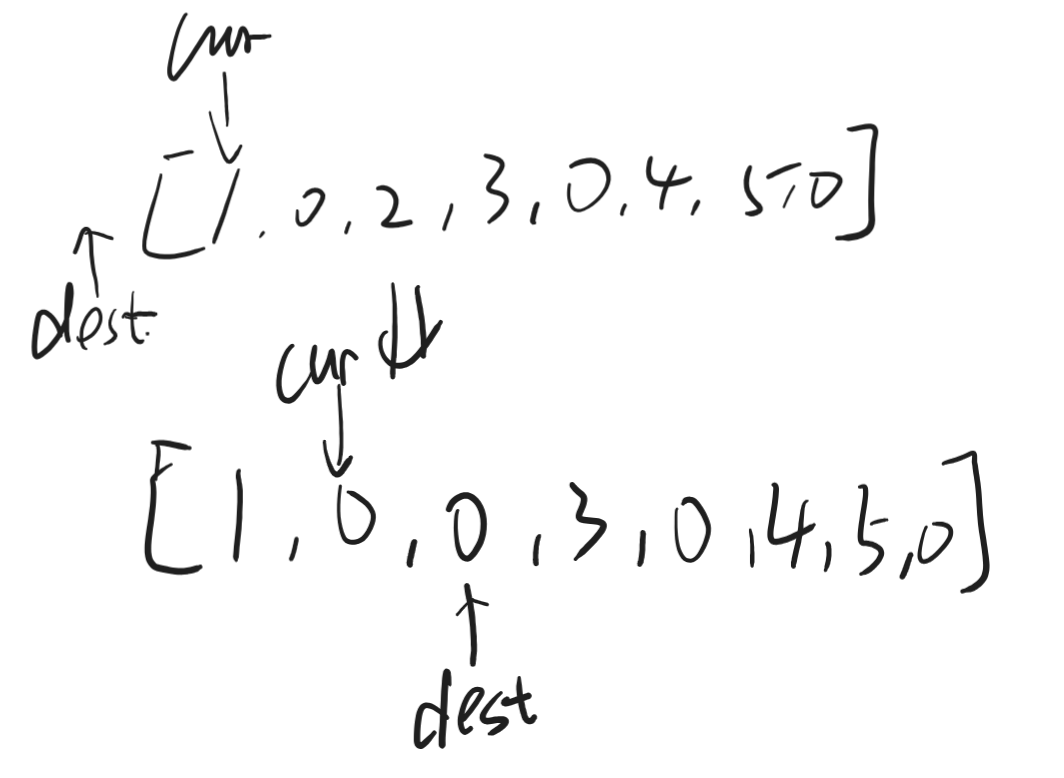 cur
[1, 0, 2, 3, 0, 4, 5, 0]
dest
cur
[1, 0, 0, 3, 0, 4, 5, 0]
dest